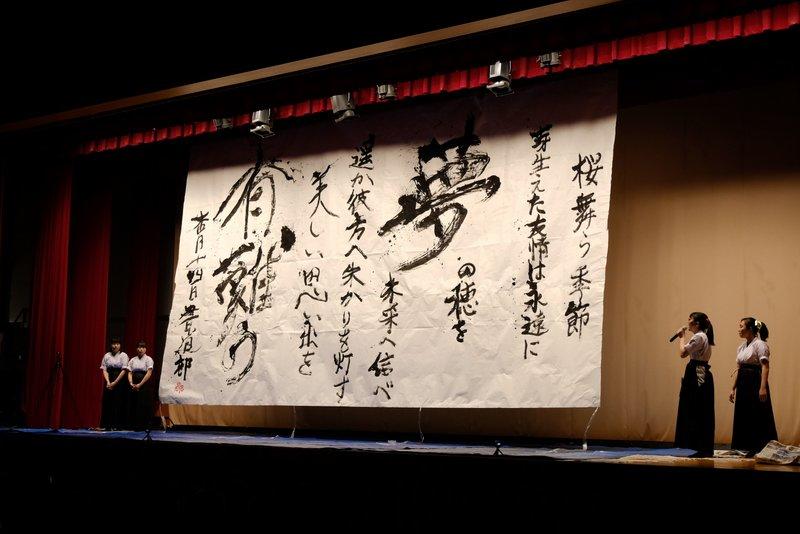 桜舞う季節
芽生えた友情は永遠に
夢の穂を
未来へ信べ
遥か彼方へ失かりを灯す
美しい思い出を
有難う
書道部